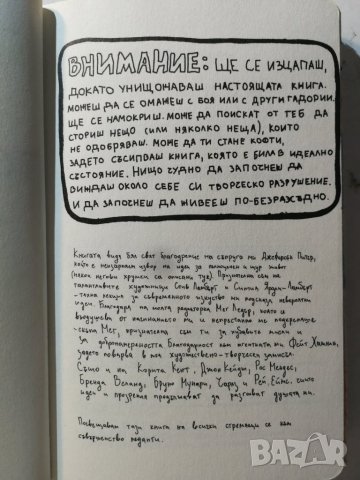 ВНИМАНИЕ: ЩЕ СЕ ИЗЦАПАШ,
ДОКАТО УНИЩОЖАВАШ НАСТОЯЩАТА КНИГА.
МОЖЕШ ДА СЕ ОМАЖЕШ С БОЯ ИЛИ С ДРУГИ ГАДОРИИ.
ЩЕ СЕ НАМОКРИШ. МОЖЕ ДА ПОИСКАТ ОТ ТЕБ ДА
СТОРИШ НЕЩО (ИЛИ НЯКОЛКО НЕЩА), КОИТО
НЕ ОДОБРЯВАШ. МОЖЕ ДА ТИ СТАНЕ КОФТИ,
ЗАДЕТО СЪСИПВАШ КНИГА, КОЯТО Е БИЛА В ИДЕАЛНО
СЪСТОЯНИЕ. НИЩО ЧУДНО ДА ЗАПОЧНЕШ ДА
ВИЖДАШ ОКОЛО СЕБЕ СИ ТВОРЧЕСКО РАЗРУШЕНИЕ.
И ДА ЗАПОЧНЕШ ДА ЖИВЕЕШ ПО-БЕЗРАЗСЪДНО.
Книгата видя бял свят благодарение на съпруга ми Джеферсън Питър,
който е неизчерпаем извор на идеи за
(някои негови хрумки са описани тук). Признателна съм на
талантливите художници Стив Ламбърт и Синтия Ярди-Ламбърт
идеи. Благодаря на моята редакторка Мег Ледър, която
въодушевява от и не престана да подкрепяше
скъпа Мег, признателна съм ти за хубавите мисли и
за добронамереността. Благодарност към агентката ми Фейт Хамлин,
задето повярва в моя художествено-творчески замисъл.
Също и на Корита Кент, Джон Кейдж, Рос Мендес,
Бренда Уеланд, Бруно Мунари, Чарлз и Рей Еймс, чиито
идеи и прозрения продължават да разгарят душата ми.
Посвещавам тази книга на всички стремящи се към
съвършенство педанти.
BAZAR